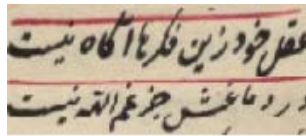 عقل خود زین فکرها آگاه نیست
در دماغش جز غم الله نیست